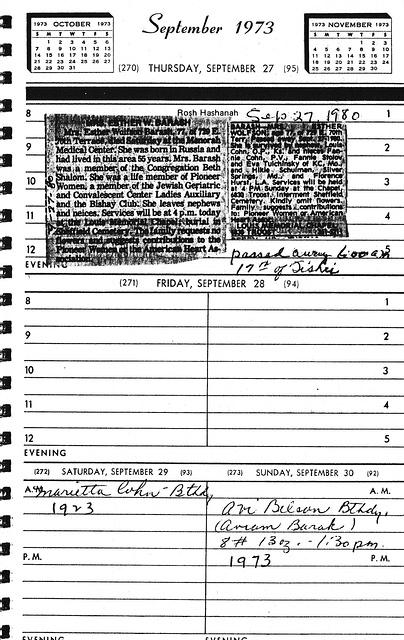 September 1973
1973 OCTOBER 1973
S M T W T F S
1 2 3 4 5 6
7 8 9 10 11 12 13
14 15 16 17 18 19 20
21 22 23 24 25 26 27
28 29 30 31
1973 NOVEMBER 1973
S M T W T F S
1 2 3
4 5 6 7 8 9 10
11 12 13 14 15 16 17
18 19 20 21 22 23 24
25 26 27 28 29 30
(270) THURSDAY, SEPTEMBER 27 (95)
8 Rosh Hashanah Sep 27 1980 1
MRS. ESTHER W. BARASH
Mrs. Esther Wolfson Barash, 77, of 729 E.
Terrace, died Saturday at the Menorah
Medical Center. She was born in Russia and
had lived in this area 55 years. Mrs. Barash
was a member of the Congregation Beth
Shalom. She was a life member of Pioneer
Women, a member of the Jewish Geriatric
and Convalescent Center Ladies Auxiliary
and the Bishay Club. She leaves nephews
and neices. Services will be at 4 p.m. today
at the Louis Memorial Chapel; burial in
Sheffield Cemetery. The family requests no
flowers and suggests contributions to the
Pioneer Women or American Heart As-
sociation.
ESTHER
She is survived by nephew, Louis
Cohn, O.P., Ks. and nieces Fan-
nie Cohn, P.V., Fannie Stolov,
and Eva Tulchinsky of KC, Mo.
and Hikie Schulman, Silver
Springs, Md., and Florence
Hurst, L.A. Services will be held
at 4 PM. Sunday at the Chapel,
6830 Troost. Interment Sheffield
Cemetery. Kindly omit flowers.
Family suggests contributions
to: Pioneer Women or American
Heart Assn.
LOUIS MEMORIAL CHAPEL
6830 TROOST
9 2
10 3
11 4
12 5
passed away 6:00 am
17th of Tishri
EVENING
(271) FRIDAY, SEPTEMBER 28 (94)
8 1
9 2
10 3
11 4
12 5
EVENING
(272) SATURDAY, SEPTEMBER 29 (93)
A.M.
Marietta Cohn - Bthdy
1923
P.M.
EVENING
(273) SUNDAY, SEPTEMBER 30 (92)
A.M.
Avi Belson Bthdy.
(Aviam Barak)
8# 13oz. - 1:30 pm.
1973
P.M.
EVENING